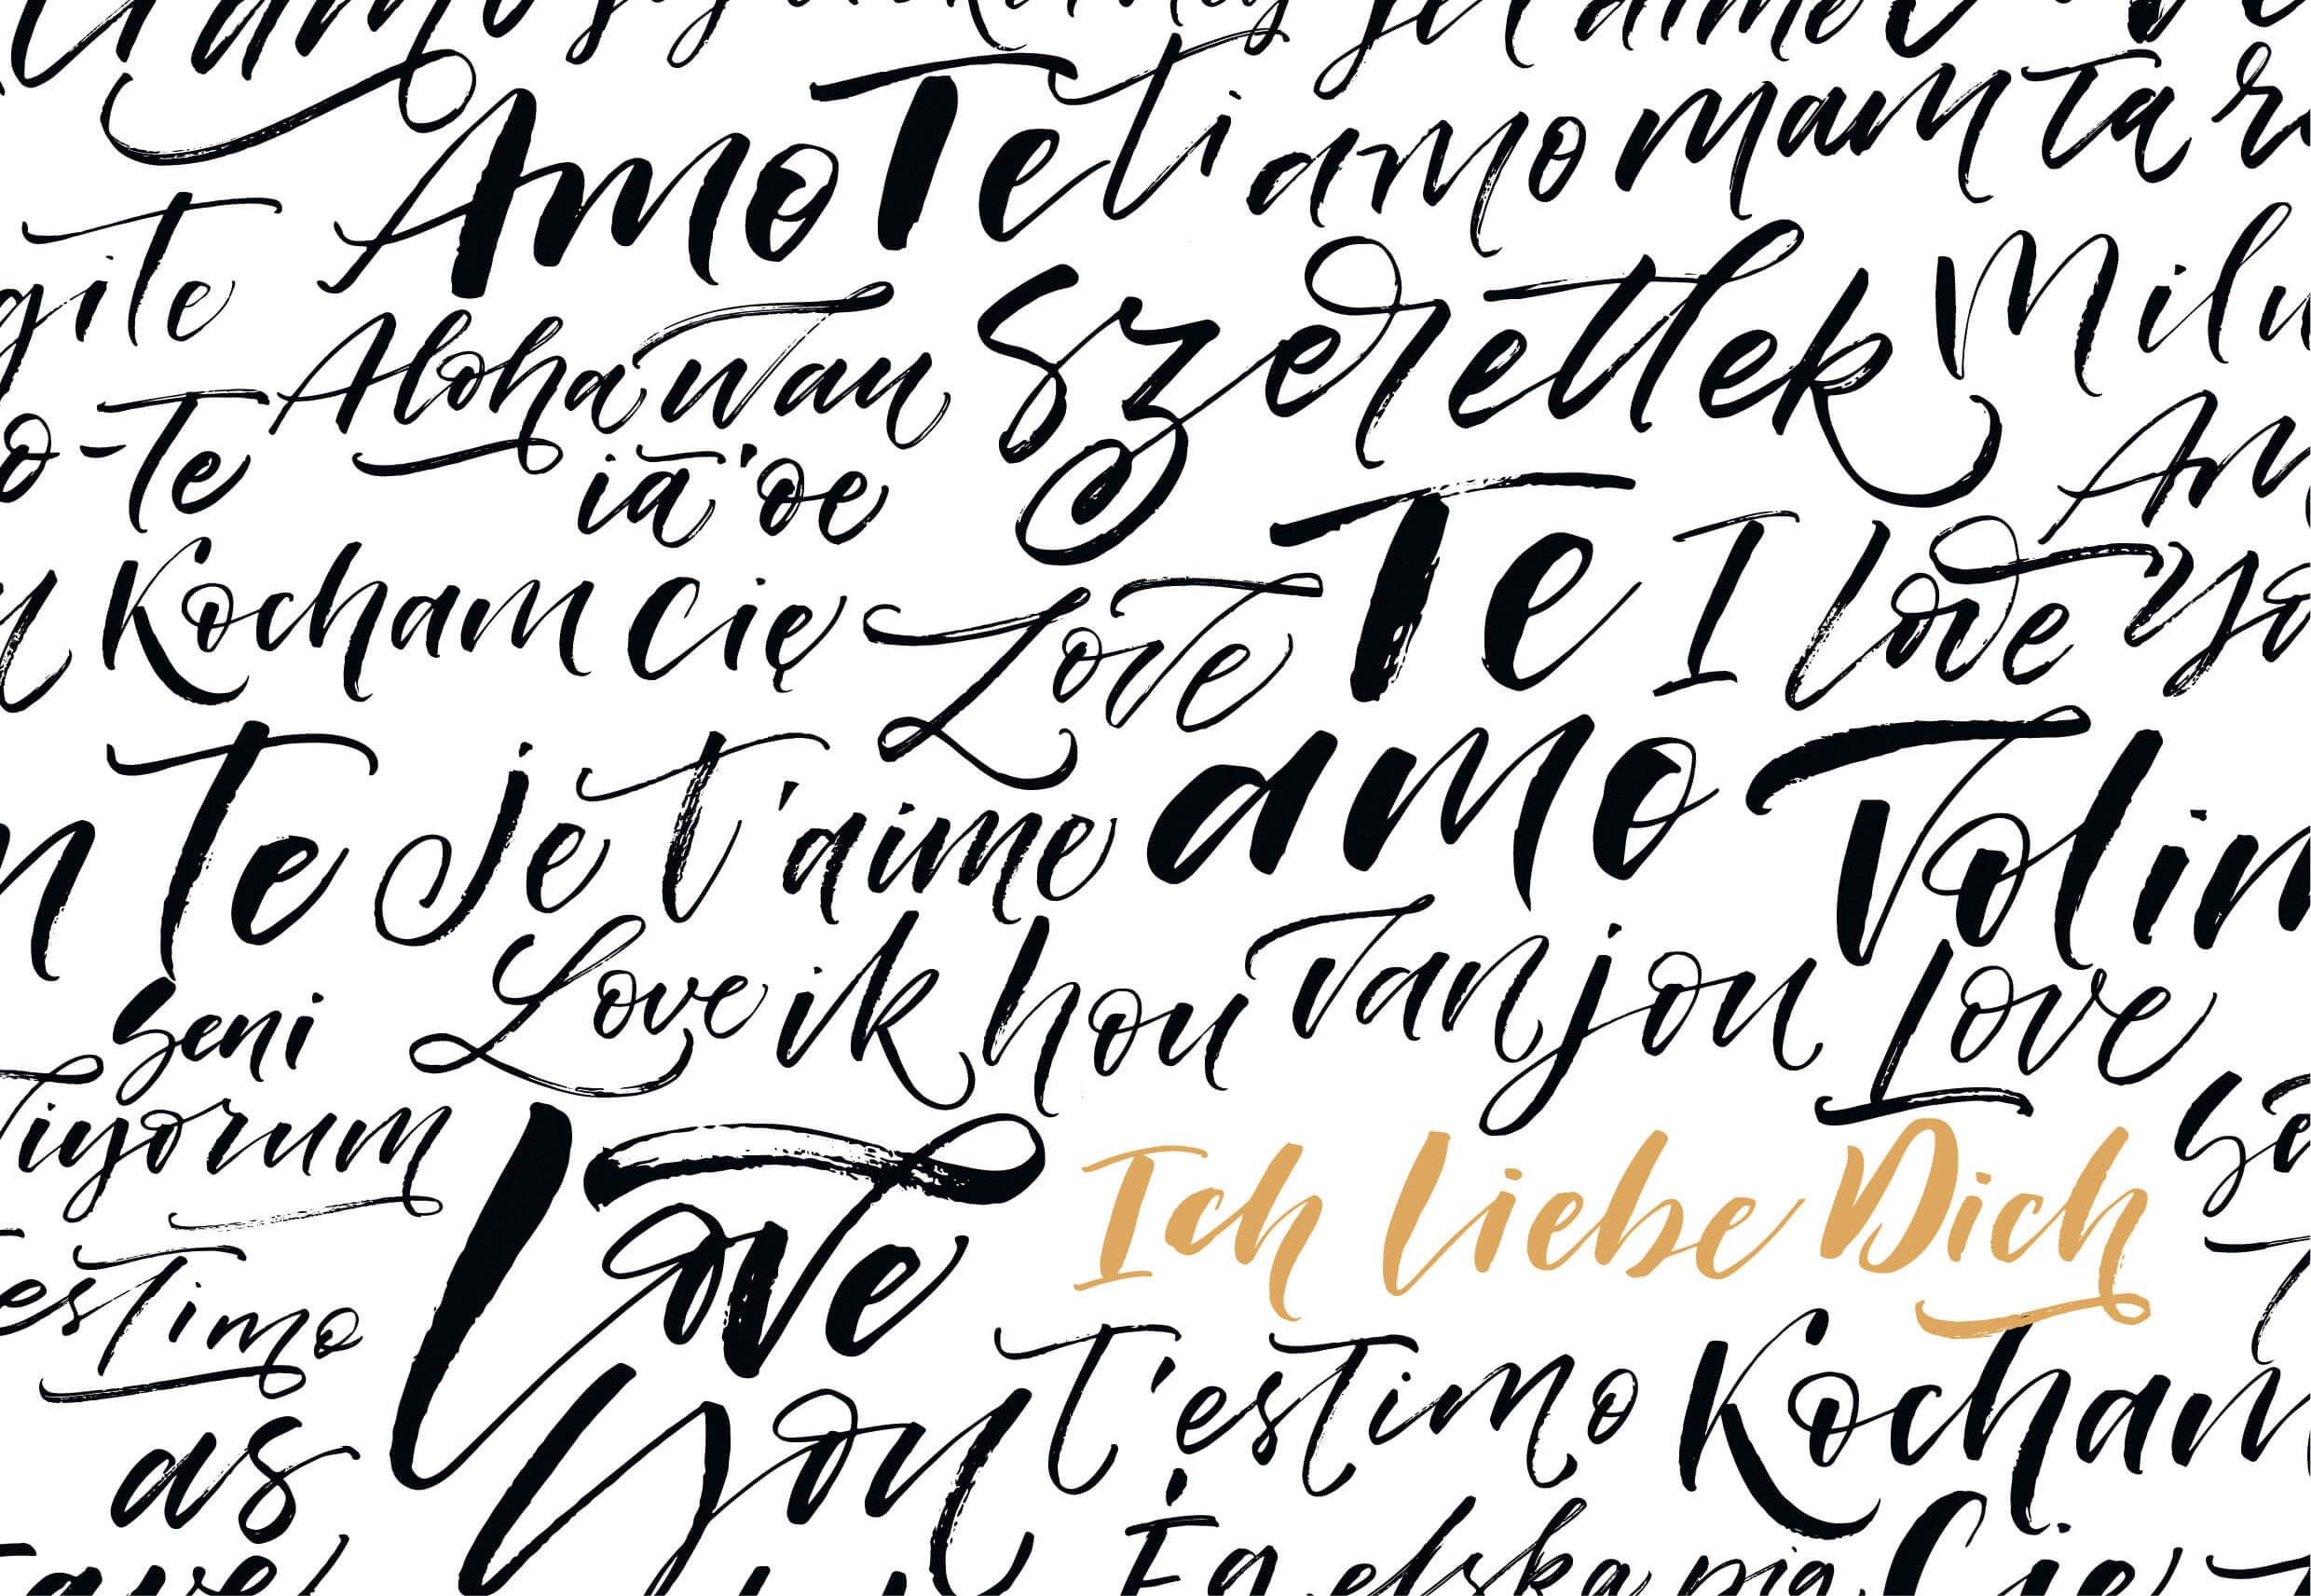 je t'aime
Amo Te ti amo mam ta r
ite
Aloha wau Szeretlek Milu
o-te
iā 'oe
Kocham Cię Love Te I love yo
n Te Je t'aime amo Volim
Seni Love ik hou van jou Love
viyorum
Love Ich liebe Dich
estimo
You T'estimo Kocham
as
Ég elska þig Cię